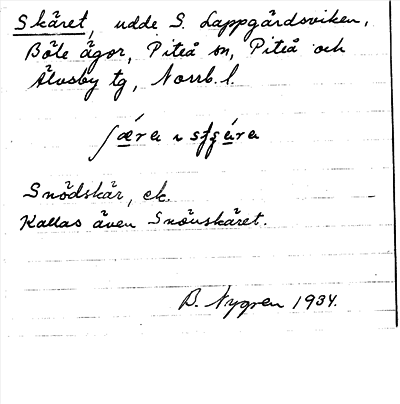 Skäret, udde S. Lappgårdsviken,
Böle ägor, Piteå sn, Piteå och
Älvsby tg, Norrb. l.
Snödskär, ek.
Kallas även Snöuskäret.
B. Nygren 1934.